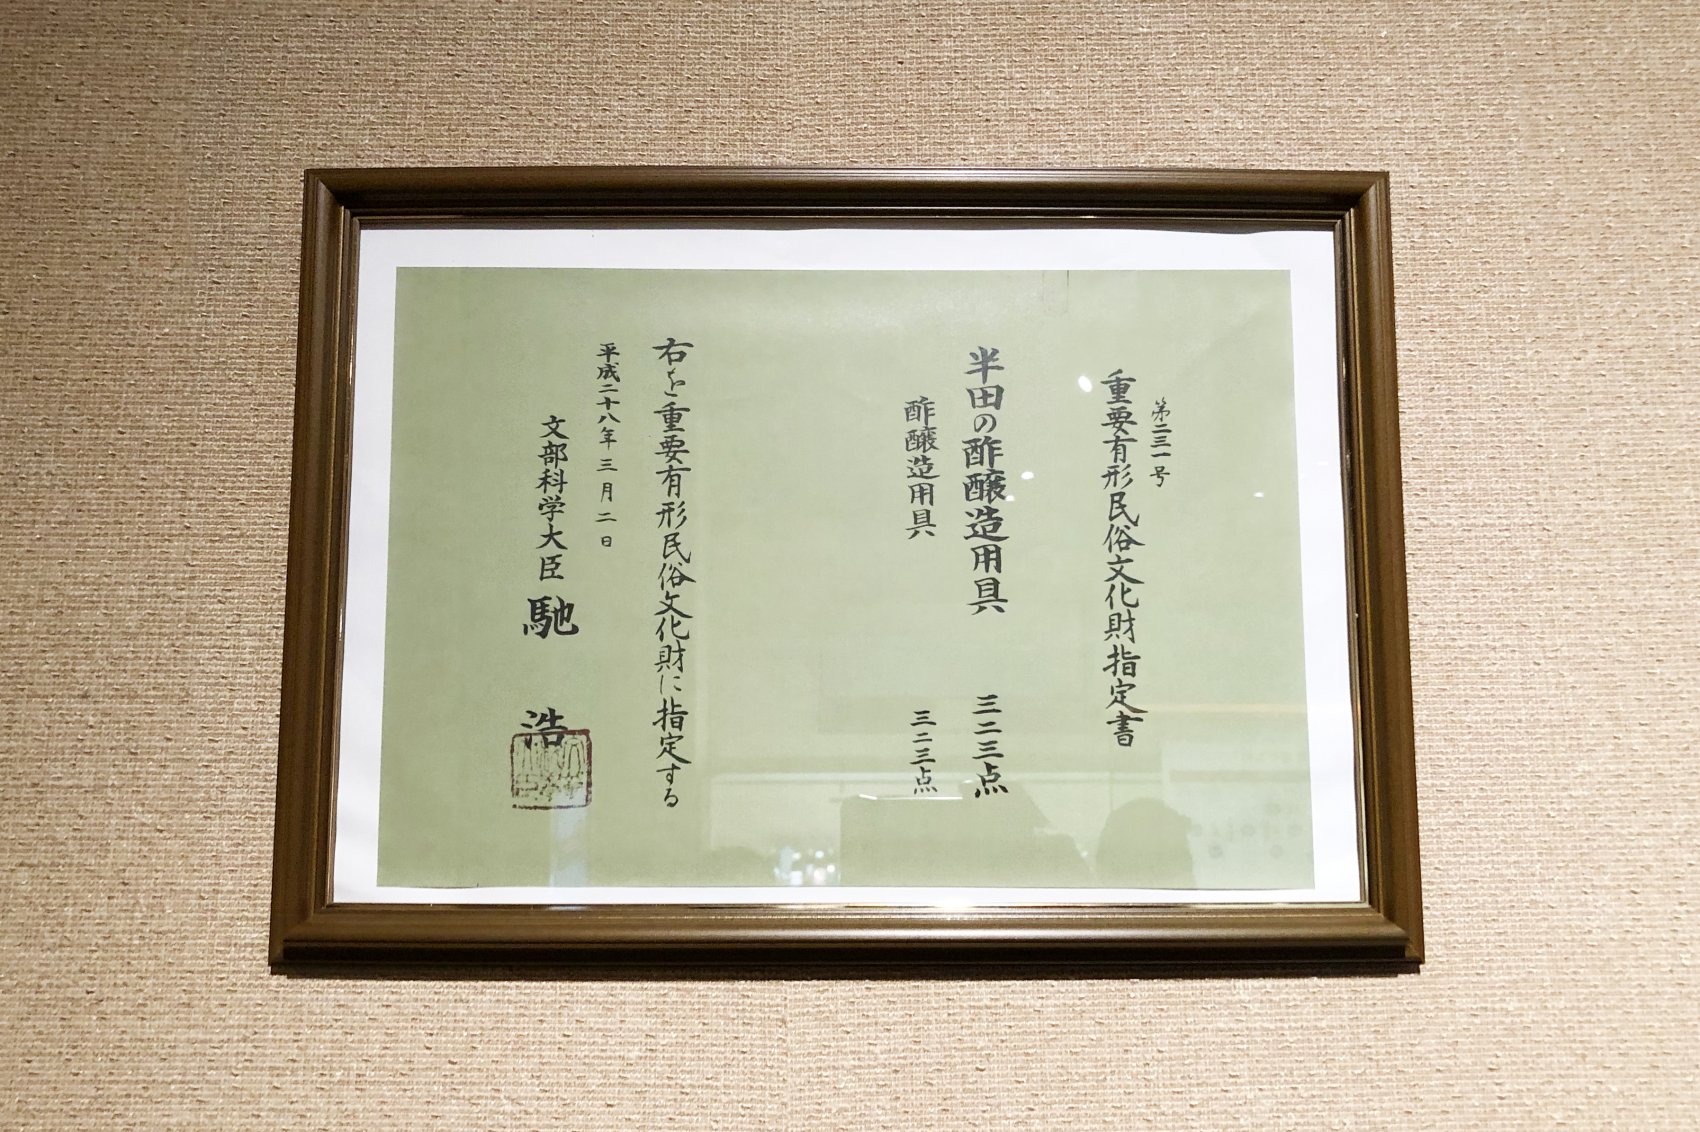 第二三一号
重要有形民俗文化財指定書
半田の酢醸造用具 三二三点
酢醸造用具 三二三点
右を重要有形民俗文化財に指定する
平成二十八年三月二日
文部科学大臣 馳 浩